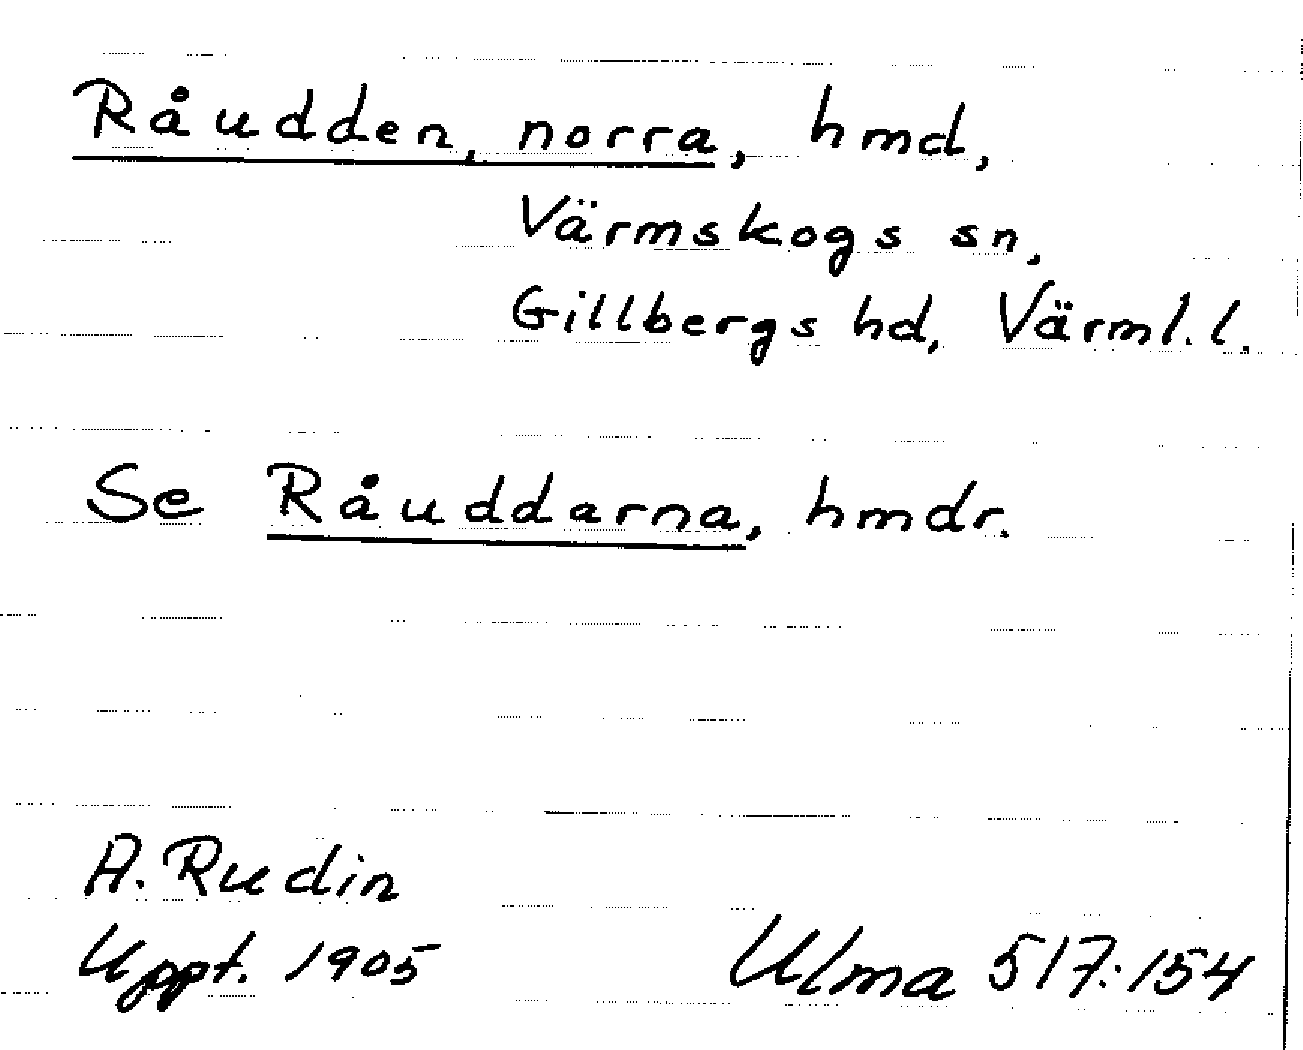 Råudden, norra, hmd,
Värmskogs sn,
Gillbergs hd, Värml. l.
Se Råuddarna, hmdr.
A. Rudin
Uppt. 1905
Ulma 517:154